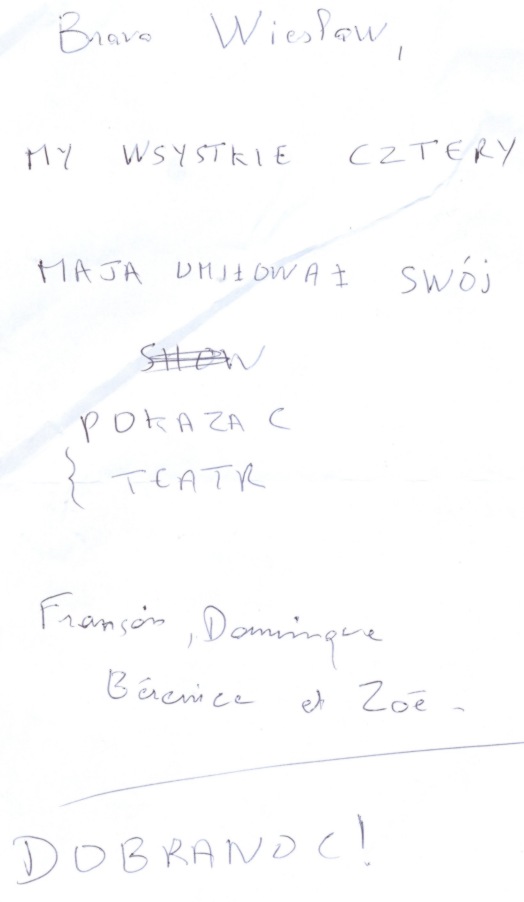 Bravo Wiesław,
MY WSYSTKIE CZTERY
MAJA UMIŁOWAŁ SWÓJ
SHOW
POKAZAC
} TEATR
Françõn, Dominique
Bérénice et Zoé.
DOBRANOC!